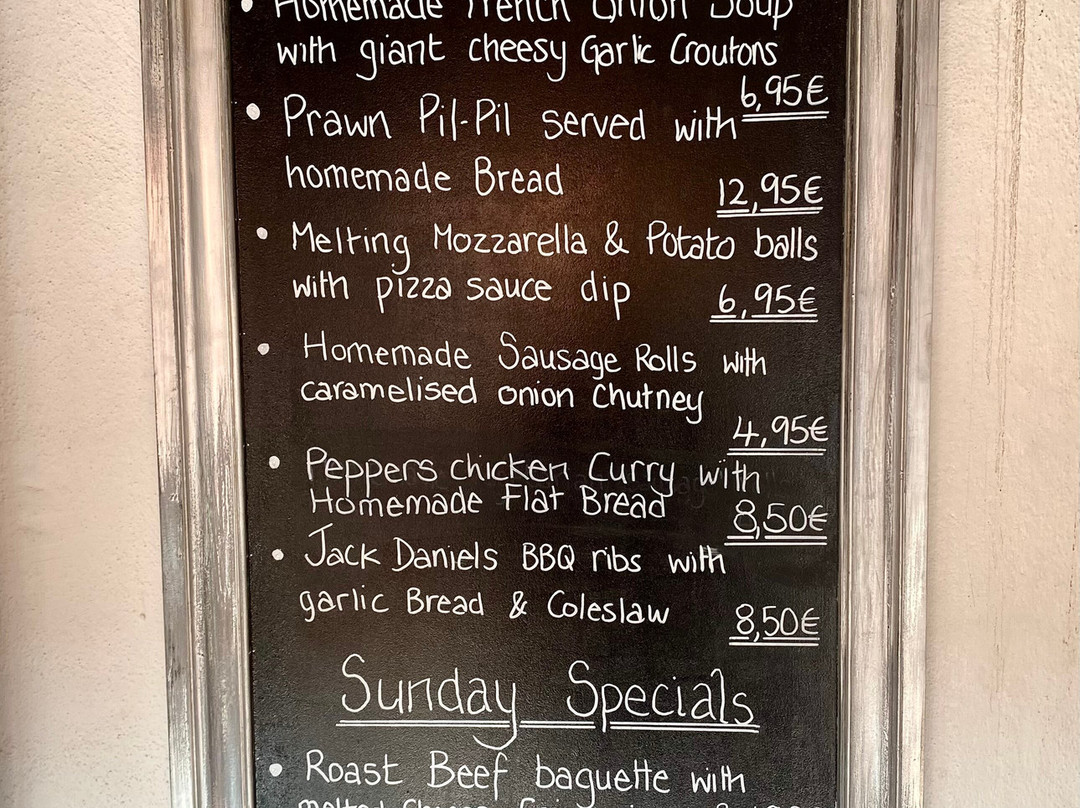 • Homemade French Onion Soup
with giant cheesy Garlic Croutons
6,95€
• Prawn Pil-Pil served with
homemade Bread
12,95€
• Melting Mozzarella & Potato balls
with pizza sauce dip
6,95€
• Homemade Sausage Rolls with
caramelised onion Chutney
4,95€
• Peppers chicken Curry with
Homemade Flat Bread
8,50€
• Jack Daniels BBQ ribs with
garlic Bread & Coleslaw
8,50€
Sunday Specials
• Roast Beef baguette with
melted Cheese